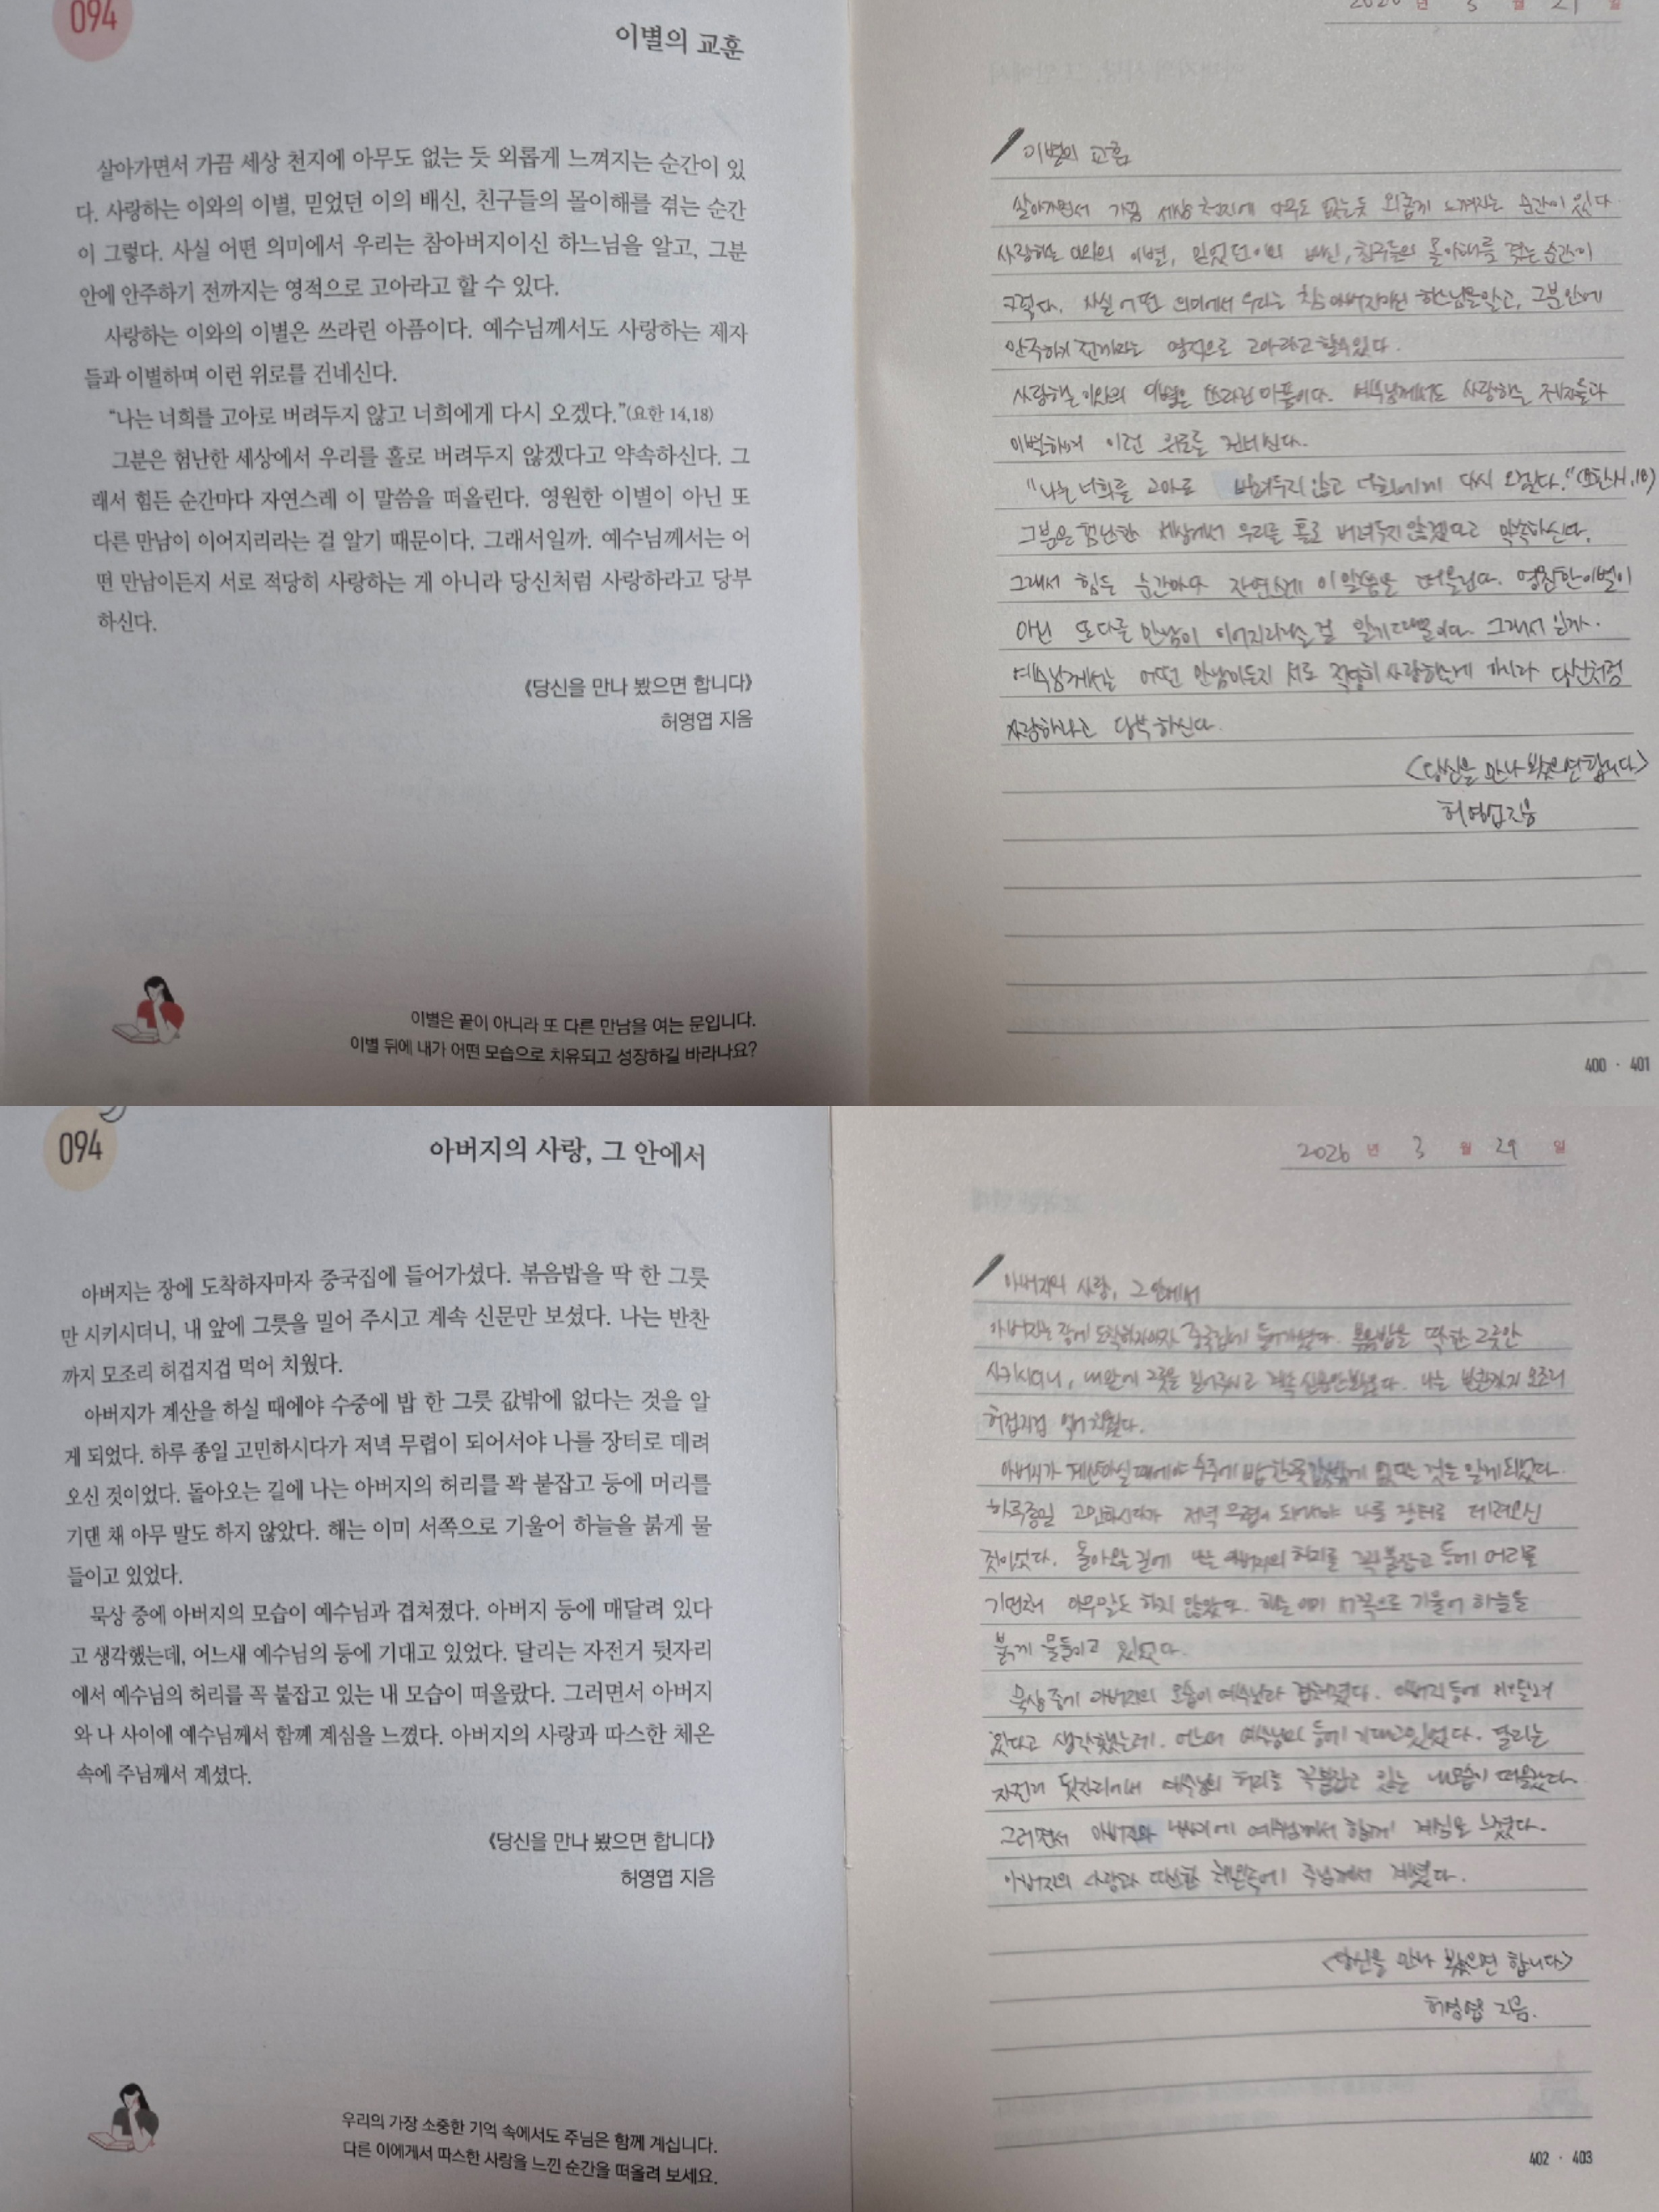 094
이별의 교훈
살아가면서 가끔 세상 천지에 아무도 없는 듯 외롭게 느껴지는 순간이 있
다. 사랑하는 이와의 이별, 믿었던 이의 배신, 친구들의 몰이해를 겪는 순간
이 그렇다. 사실 어떤 의미에서 우리는 참아버지이신 하느님을 알고, 그분
안에 안주하기 전까지는 영적으로 고아라고 할 수 있다.
사랑하는 이와의 이별은 쓰라린 아픔이다. 예수님께서도 사랑하는 제자
들과 이별하며 이런 위로를 건네신다.
“나는 너희를 고아로 버려두지 않고 너희에게 다시 오겠다.”(요한 14,18)
그분은 험난한 세상에서 우리를 홀로 버려두지 않겠다고 약속하신다. 그
래서 힘든 순간마다 자연스레 이 말씀을 떠올린다. 영원한 이별이 아닌 또
다른 만남이 이어지리라는 걸 알기 때문이다. 그래서일까. 예수님께서는 어
떤 만남이든지 서로 적당히 사랑하는 게 아니라 당신처럼 사랑하라고 당부
하신다.
《당신을 만나 봤으면 합니다》
허영엽 지음
이별은 끝이 아니라 또 다른 만남을 여는 문입니다.
이별 뒤에 내가 어떤 모습으로 치유되고 성장하길 바라나요?
년 3 월 일
이별의 교훈
살아가면서 가끔 세상 천지에 아무도 없는듯 외롭게 느껴지는 순간이 있다
사랑하는 이와의 이별, 믿었던이의 배신, 친구들의 몰이해를 겪는 순간이
그렇다. 사실 어떤 의미에서 우리는 참아버지이신 하느님을알고, 그분안에
안주하기 전까지는 영적으로 고아라고 할수있다.
사랑하는 이와의 이별은 쓰라린 아픔이다. 예수님께서도 사랑하는 제자들과
이별하며 이런 위로를 건네신다.
“나는 너희를 고아로 버려두지 않고 너희에게 다시 오겠다.”(요한14,18)
그분은 험난한 세상에서 우리를 홀로 버려두지 않겠다고 약속하신다.
그래서 힘든 순간마다 자연스레 이 말씀을 떠올린다. 영원한 이별이
아닌 또다른 만남이 이어지리라는 걸 알기때문이다. 그래서 일까.
예수님께서는 어떤 만남이든지 서로 적당히 사랑하는게 아니라 당신처럼
사랑하라고 당부 하신다.
<당신을 만나 봤으면 합니다>
허영엽지음
400 · 401
094
아버지의 사랑, 그 안에서
아버지는 장에 도착하자마자 중국집에 들어가셨다. 볶음밥을 딱 한 그릇
만 시키시더니, 내 앞에 그릇을 밀어 주시고 계속 신문만 보셨다. 나는 반찬
까지 모조리 허겁지겁 먹어 치웠다.
아버지가 계산을 하실 때에야 수중에 밥 한 그릇 값밖에 없다는 것을 알
게 되었다. 하루 종일 고민하시다가 저녁 무렵이 되어서야 나를 장터로 데려
오신 것이었다. 돌아오는 길에 나는 아버지의 허리를 꽉 붙잡고 등에 머리를
기댄 채 아무 말도 하지 않았다. 해는 이미 서쪽으로 기울어 하늘을 붉게 물
들이고 있었다.
묵상 중에 아버지의 모습이 예수님과 겹쳐졌다. 아버지 등에 매달려 있다
고 생각했는데, 어느새 예수님의 등에 기대고 있었다. 달리는 자전거 뒷자리
에서 예수님의 허리를 꼭 붙잡고 있는 내 모습이 떠올랐다. 그러면서 아버지
와 나 사이에 예수님께서 함께 계심을 느꼈다. 아버지의 사랑과 따스한 체온
속에 주님께서 계셨다.
《당신을 만나 봤으면 합니다》
허영엽 지음
우리의 가장 소중한 기억 속에서도 주님은 함께 계십니다.
다른 이에게서 따스한 사랑을 느낀 순간을 떠올려 보세요.
2026 년 3 월 29 일
아버지의 사랑, 그 안에서
아버지는 장에 도착하자마자 중국집에 들어가셨다. 볶음밥을 딱한 그릇만
시키시더니, 내앞에 그릇을 밀어주시고 계속 신문만보셨다. 나는 반찬까지 모조리
허겁지겁 먹어 치웠다.
아버지가 계산하실때에야 수중에 밥 한그릇값밖에 없다는 것을 알게되었다.
하루종일 고민하시다가 저녁 무렵이 되어서야 나를 장터로 데려오신
것이었다. 돌아오는 길에 나는 아버지의 허리를 꽉붙잡고 등에 머리를
기댄채 아무말도 하지 않았다. 해는 이미 서쪽으로 기울어 하늘을
붉게 물들이고 있었다.
묵상 중에 아버지의 모습이 예수님과 겹쳐졌다. 아버지등에 매달려
있다고 생각했는데. 어느새 예수님의 등에 기대고있었다. 달리는
자전거 뒷자리에서 예수님의 허리를 꼭붙잡고 있는 내모습이 떠올랐다.
그러면서 아버지와 나사이에 예수님께서 함께 계심을 느꼈다.
아버지의 사랑과 따스한 체온속에 주님께서 계셨다.
<당신을 만나 봤으면 합니다>
허영엽 지음.
402 · 403